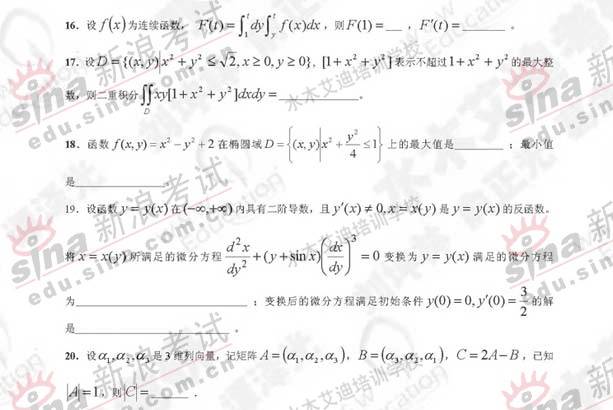 16. 设 f(x) 为连续函数, F(t)=∫₁ᵗdy∫ᵧᵗf(x)dx, 则F(1)=__, F′(t)=______ 。
17. 设D={(x,y)|x²+y²≤√2,x≥0,y≥0}, [1+x²+y²]表示不超过1+x²+y²的最大整
数, 则二重积分∬_D xy[1+x²+y²]dxdy=____________。
18. 函数 f(x,y)=x²-y²+2在椭圆域D={(x,y)|x²+y²/4≤1}上的最大值是_______ ; 最小值
是____________。
19. 设函数y=y(x)在(-∞,+∞)内具有二阶导数, 且y′(x)≠0,x=x(y)是y=y(x)的反函数。
将x=x(y)所满足的微分方程 d²x/dy²+(y+sin x)(dx/dy)³=0变换为y=y(x)满足的微分方程
为________________________ ; 变换后的微分方程满足初始条件y(0)=0,y′(0)=3/2的解
是____________________ 。
20. 设α₁,α₂,α₃是3维列向量, 记矩阵A=(α₁,α₂,α₃), B=(α₃,α₂,α₁), C=2A-B, 已知
|A|=1, 则|C|=______ .
sina 新浪考试
edu.sina.com.cn
水木艾迪培训学校